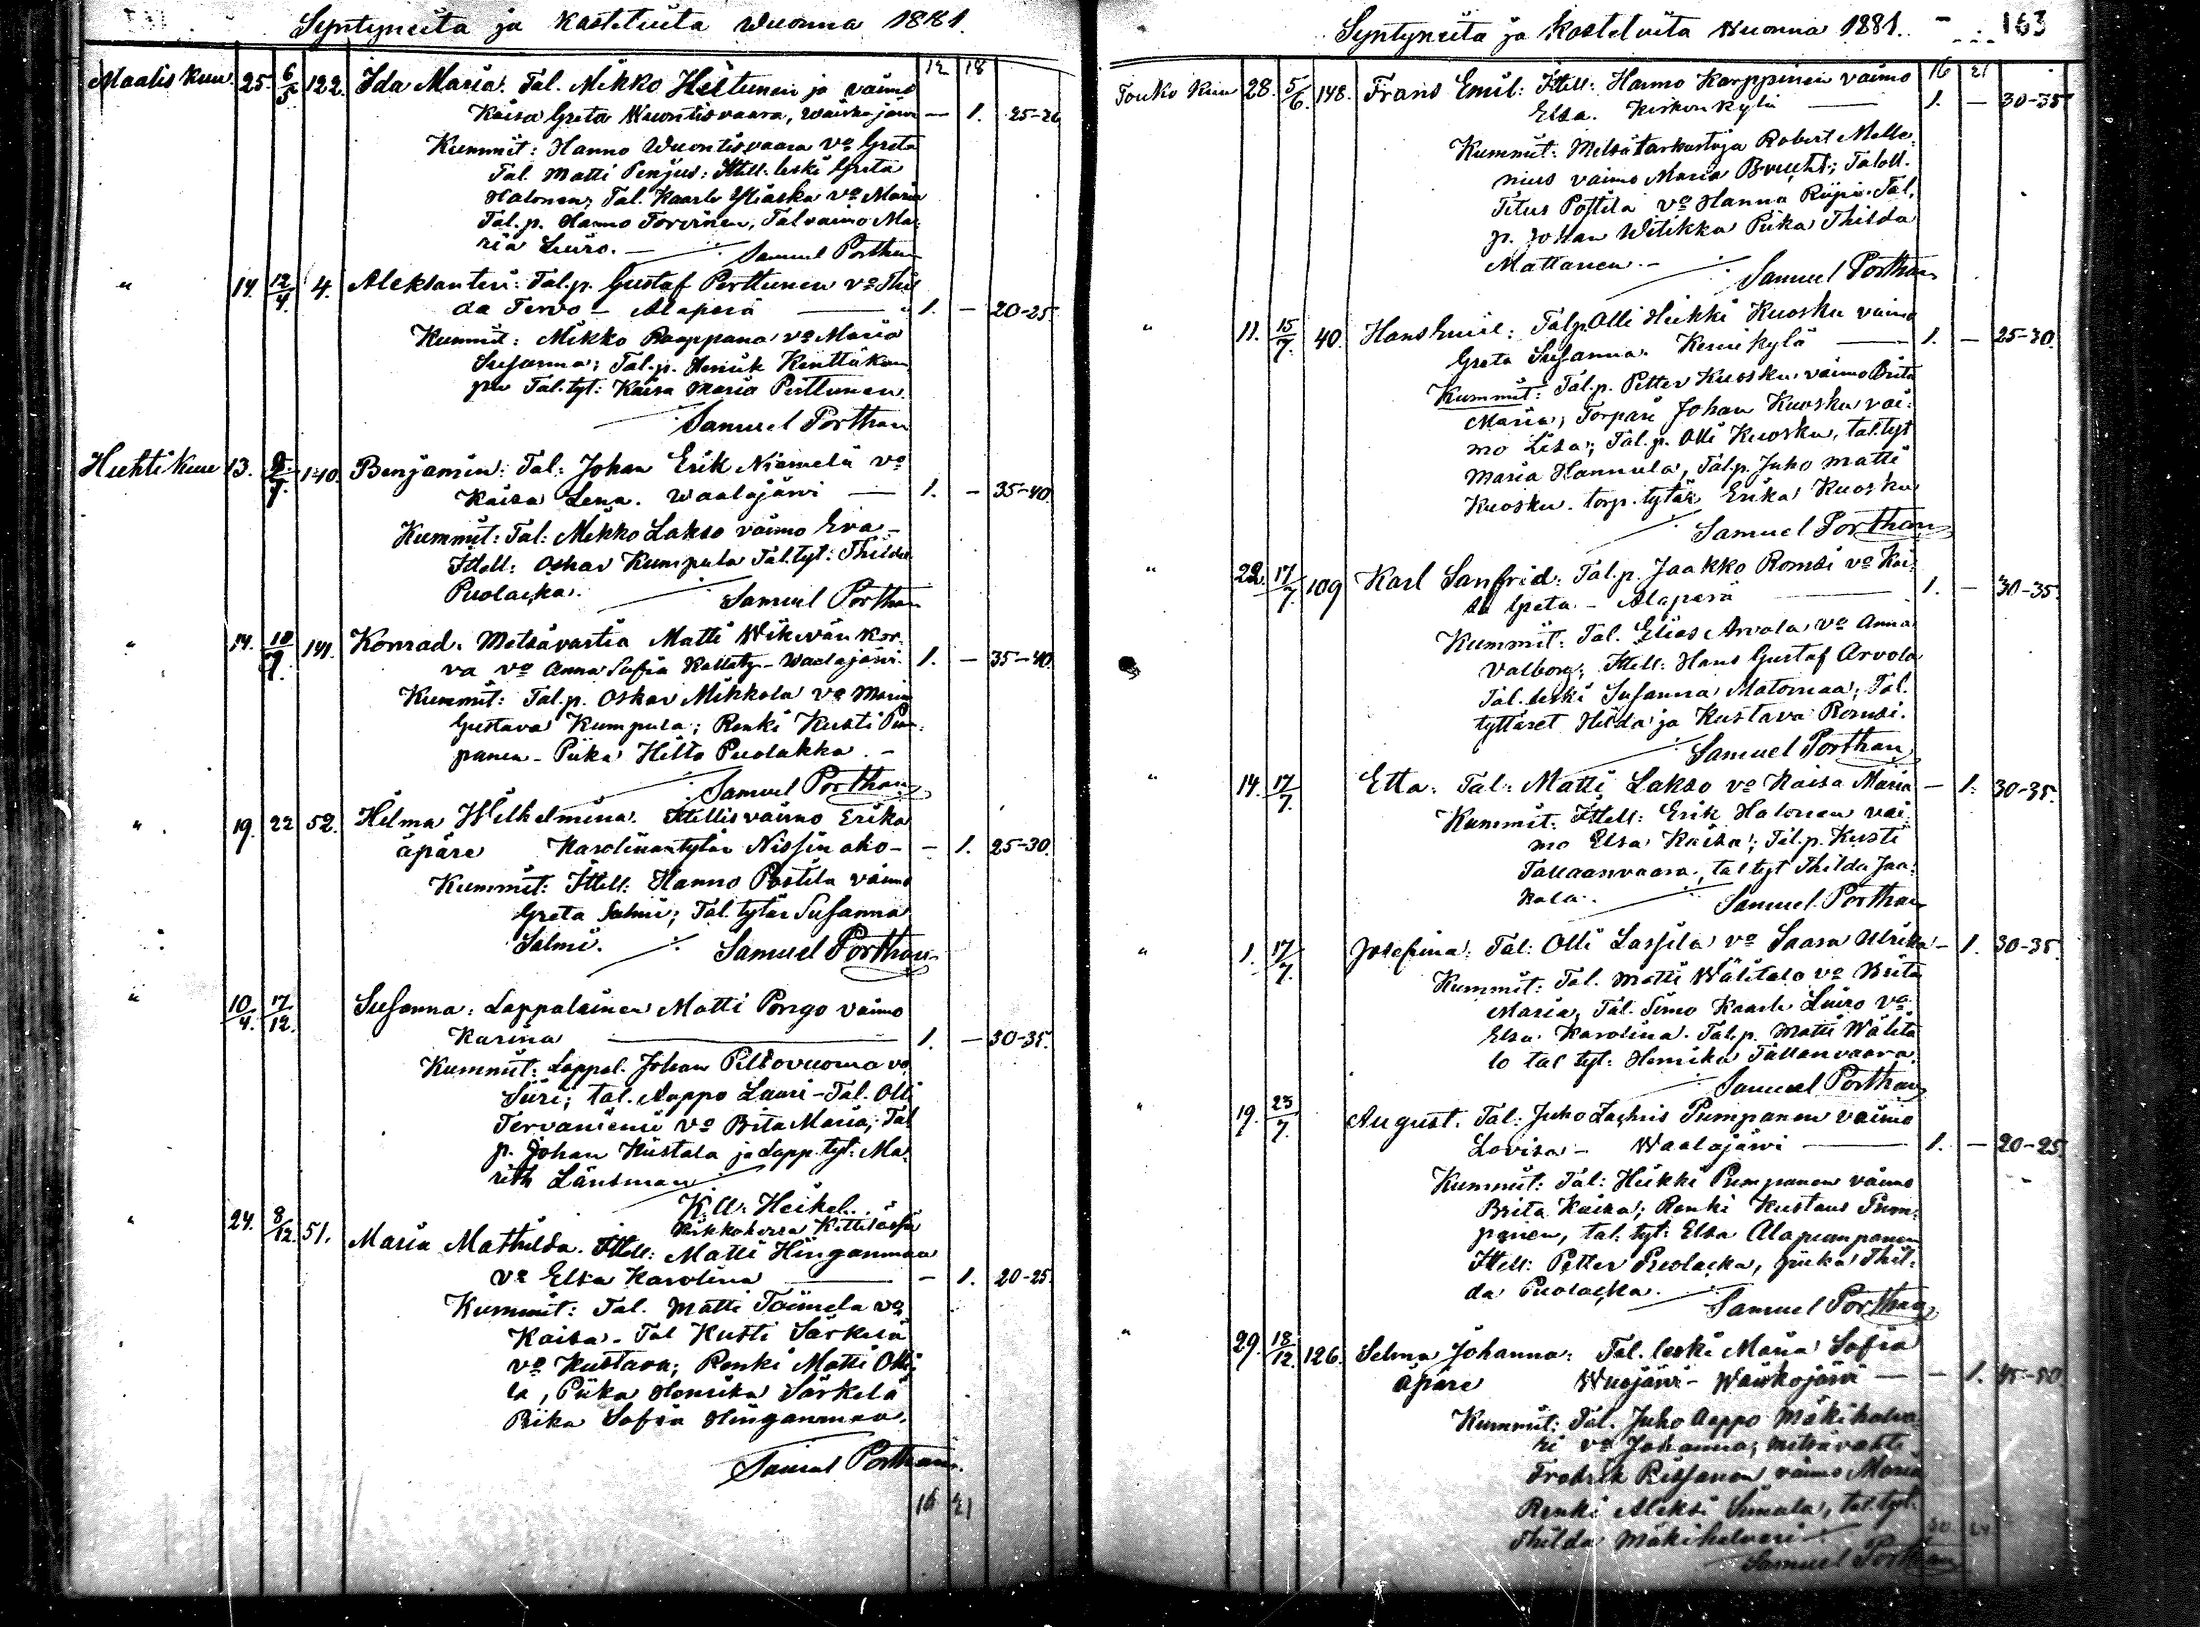 Syntyneitä ja kastetuita Wuonna 1881.
12 18
Maalis Kuu 25. 6/5 122. Ida Maria. Tal. Mikko Hiltunen ja vaimo
Kaisa Greta Wuontisvaara, Waiskojärvi — 1. 25-26
Kummit: Hanno Wuontisvaara vo Greta
Tal. Matti Penjus: Ittell. leski Greta
Halonen, Tal. Kaarlo Yliaska vo Maria
Tal. p. Hanno Torvinen, Tal vaimo Ma-
ria Luiro. — Samuel Porthan
" 14 12/4. 4. Aleksanteri: Tal. p. Gustaf Perttunen vo Thil
da Tervo — Alaperä — 1. — 20-25
Kummit: Mikko Raappana vo Maria
Susanna; Tal. p. Henrik Kenttäkum
pu Tal. tyt: Kaisa Maria Perttunen.
Samuel Porthan
Huhti Kuu 13. 7. 140. Benjamin: Tal: Johan Erik Niemelä vo
Kaisa Lena. Waalajärvi — 1. — 35-40.
Kummit: Tal: Mikko Lakso vaimo Eva —
Ittell: Oskar Kumpula Tal. tyt: Thilda
Puolacka. Samuel Porthan
" 14. 10/7. 141. Konrad. Metsävartia Matti Wikevän Kor-
va vo Anna Sofia Waalajärvi. 1. — 35-40.
Kummit: Tal. p. Oskar Mikkola vo Maria
Gustava Kumpula; Renki Kusti Pum-
panen — Piika Hilta Puolakka. —
Samuel Porthan
" 19. 22 52. Hilma Wilhelmina. Ittellisvaimo Erika
äpäre Karolinantytär Nissin aho — — 1. 25-30.
Kummit: Ittell: Hanno Postila vaimo
Greta Salmi; Tal. tytär Susanna
Salmi. Samuel Porthan
" 10/4. 17/12. Susanna: Lappalainen Matti Pongo vaimo
Karina — 1. — 30-35.
Kummit: Lappal. Johan Peltovuoma vo
Siiri; tal. Aappo Lauri — Tal. Olli
Tervaniemi vo Brita Maria; Tal
p. Johan Kiistala ja Lapp. tyt: Ma-
rith Länsman
K. A. Heikel.
Kirkkoherra Kittilässä
" 24. 8/12. 51. Maria Mathilda. Ittell: Matti Hinganmaa
vo Elsa Karolina — — 1. 20-25.
Kummit: Tal. Matti Toimela vo
Kaisa. Tal Kusti Särkelä
vo Kustava; Renki Matti Olli
la, Piika Henrika Särkelä
Piika Sofia Hinganmaa.
Samuel Porthan.
16 21
Syntyneitä ja Kastetuita Wuonna 1881. — 163
16 21
Touko Kuu 28. 5/6. 148. Frans Emil: Ittell: Hanno Karppinen vaimo
Elsa. Kirkon kylä — 1. — 30-35
Kummit: Metsätarkastaja Robert Melle-
nius vaimo Maria Brucht; Taloll.
Titus Postila vo Hanna Riipi. Tal.
p. Johan Witikka Piika Thilda
Mattanen. — Samuel Porthan
" 11. 15/7. 40. Hans Emil: Talp. Olli Heikki Kuosku vaimo
Greta Susanna. Kemikylä — 1. — 25-30.
Kummit: Tal. p. Petter Kuosku vaimo Brita
Maria; Torpari Johan Kuosku vai-
mo Lisa; Tal. p. Olli Kuosku, tal. tyt
Maria Hannula, Tal. p. Juho Matti
Kuosku. torp. tytär Erika Kuosku
Samuel Porthan
" 22. 17/7. 109 Karl Sanfrid: Tal. p. Jaakko Romsi vo Kai-
sa Greta. — Alaperä — 1. — 30-35.
Kummit: Tal. Elias Arvola vo Anna
Valborg; Ittell: Hans Gustaf Arvola
Tal. leski Susanna Matomaa; Tal.
tyttäret Hilda ja Kustava Romsi.
Samuel Porthan
" 14. 17/7. Etta: Tal: Matti Lakso vo Kaisa Maria — 1. 30-35.
Kummit: Ittell: Erik Halonen vai-
mo Elsa Kaisa; Tal. p. Kusti
Tallaanvaara, tal tyt Thilda Jaa-
kola. Samuel Porthan
" 1. 17/7. Josefina: Tal: Olli Lassila vo Saara Ulrika — 1. 30-35.
Kummit: Tal. Matti Wälitalo vo Brita
Maria; Tal. Simo Kaarle Luiro vo
Elsa Karolina. Tal. p. Matti Wälita
lo tal tyt: Henrika Tallanvaara.
Samuel Porthan
" 19. 23/7. August. Tal: Juho Zachris Pumpanen vaimo
Lovisa — Waalajärvi — 1. — 20-25.
Kummit: Tal: Heikki Pumpanen vaimo
Brita Kaisa; Renki Kustaus Pum-
panen, tal. tyt: Elsa Alapumpanen
Ittell: Petter Puolacka, piika Thil-
da Puolacka. Samuel Porthan
" 29. 18/12. 126. Selma Johanna: Tal. leski Maria Sofia
äpäre Wuojärvi — Waiskojärvi — — 1. 45-50
Kummit: Tal. Juho Aappo Mäkihalva-
ri vo Johanna; metsävahti
Fredrik Rissanen vaimo Maria
Renki Aleksi Simula, tal. tyt.
Thilda Mäkihalvari
Samuel Porthan